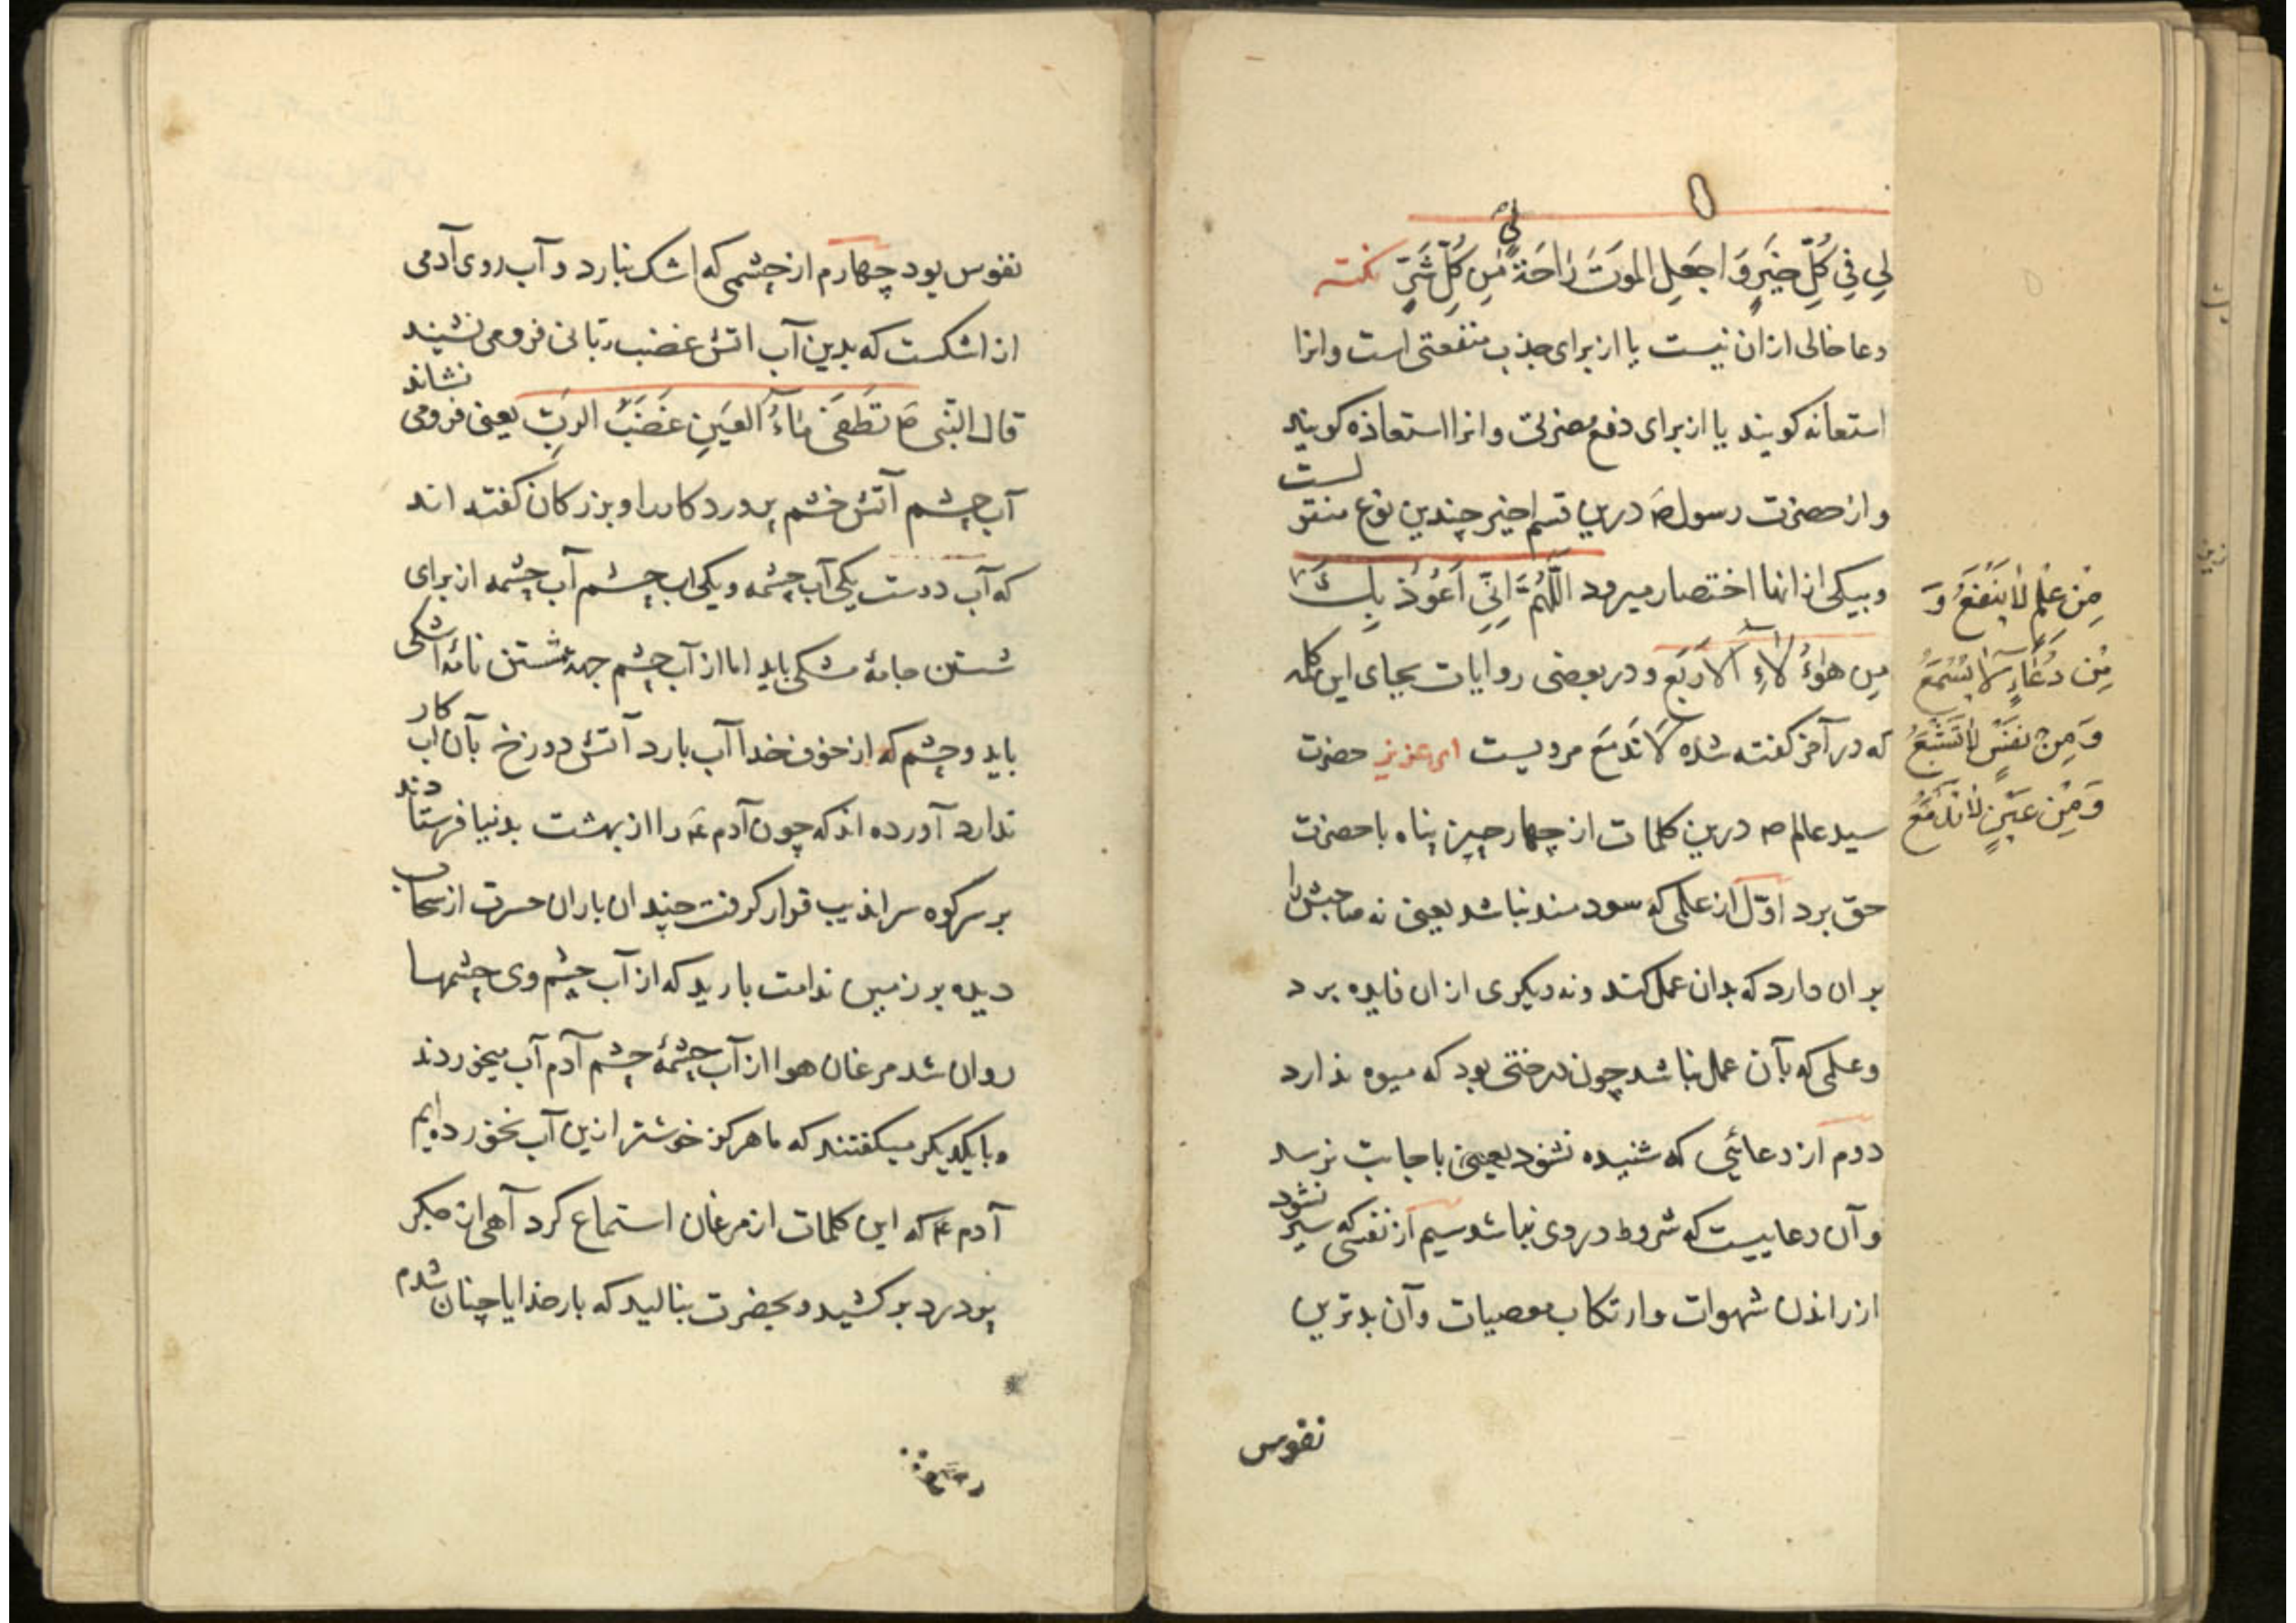 لِي فِي كُلِّ خَيْرٍ وَاجْعَلِ الْمَوْتَ رَاحَةً لِي مِنْ كُلِّ شَرٍّ نکته
دعا خالی ازان نیست یا از برای جذب منفعتی است وانرا
استعانه کویند یا از برای دفع مضرتی وانرا استعاذه کویند
و از حضرت رسول ص درین قسم اخیر چندین نوع منقولست
وبیکی از انها اختصار میرود اَللّٰهُمَّ اِنِّی اَعُوذُ بِكَ
مِن هٰؤُلَاءِ الْاَرْبَعِ و در بعضی روایات بجای این کلمه
که در آخر کفته شده لَا تَدْمَع مرویست ای عزیز حضرت
سید عالم ص درین کلمات از چهار چیز پناه با حضرت
حق برد اوّل از علمی که سودمند نباشد یعنی نه صاحبش را
بران دارد که بدان عمل کند ونه دیکری ازان فایده برد
وعلمی که بآن عمل نباشد چون درختی بود که میوه ندارد
دوم از دعائی که شنیده نشود یعنی باجابت نرسد
وآن دعاییست که شروط در وی نباشد سیم از نفسی که سیر نشود
از راندن شهوات وارتکاب معصیات وآن بدترین
نفوس
مِنْ عِلْمٍ لَا يَنْفَعُ وَ
مِنْ دُعَاءٍ لَا يُسْمَعُ
وَمِنْ نَفْسٍ لَا تَشْبَعُ
وَمِنْ عَيْنٍ لَا تَدْمَعُ
نفوس بود چهارم از چشمی که اشک نبارد و آب روی آدمی
از اشکست که بدین آب اتش غضب ربّانی فرو می نشیند
قال النبی ص تُطْفِئُ مَاءُ الْعَيْنِ غَضَبَ الرَّبِّ یعنی فرو می نشاند
آب چشم آتش خشم پروردکار را و بزرکان کفته اند
که آب دوست یکی آب چشمه و یکی اب چشم آب چشمه از برای
شستن جامهٔ مشکی باید اما از آب چشم جهة شستن نامهٔ اشکی
باید وچشم که از خوف خدا آب بارد آتش دوزخ بآن اب کار
ندارد آورده اند که چون آدم ع را از بهشت بدنیا فرستادند
بر سر کوه سراندیب قرار کرفت چندان باران حسرت از سحاب
دیده بر زمین ندامت بارید که از آب چشم وی چشمها
روان شد مرغان هوا از آب چشمهٔ چشم آدم آب میخوردند
و با یکدیکر میکفتند که ما هرکز خوشتر ازین آب نخورده ایم
آدم ع که این کلمات از مرغان استماع کرد آهی از جکر
پردرد برکشید و بحضرت بنالید که بار خدایا چنان شدم